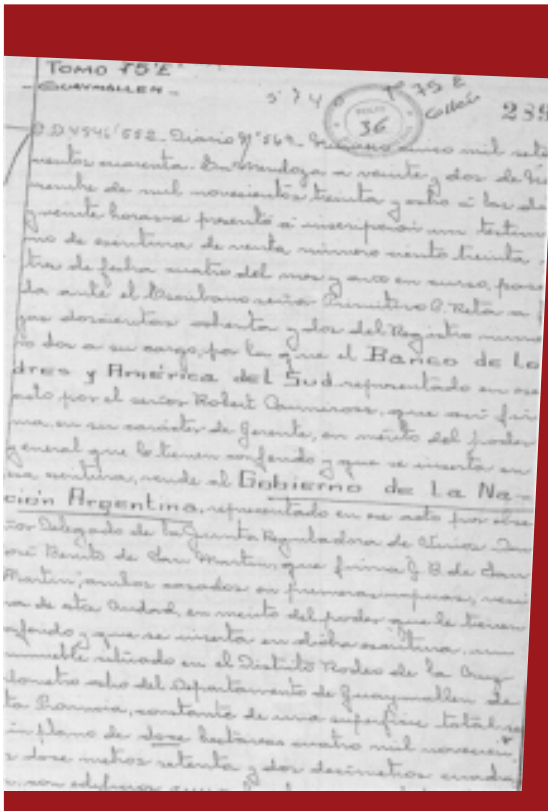 TOMO 75 E
- GUAYMALLEN -
5740
Nº 75 E
Gllén
FOLIO
36
289
Diario Nº 569. cinco mil sete
cientos cuarenta. En Mendoza a veinte y dos de Di
ciembre de mil novecientos treinta y ocho a las
y veinte horas se presentó a inscripción un testimo
nio de escritura de venta número ciento treinta y
tres de fecha cuatro del mes y año en curso, pasa
da ante el Escribano señor Primitivo C. Reta a fo
jas doscientos ochenta y dos del Registro núme
ro dos a su cargo, por la que el Banco de Lo
dres y América del Sud representado en ese
acto por el señor Robert que así fir
ma, en su carácter de Gerente, en mérito del poder
general que le tienen conferido y que se inserta en
esa escritura, vende al Gobierno de La Na-
ción Argentina, representado en ese acto por el se
ñor Delegado de la Junta Reguladora de Vinos Don
José Benito de San Martin, que firma J. B. de San
Martin, ambos casados en primeras nupcias, veci
nos de esta Ciudad, en mérito del poder que le tienen
conferido y que se inserta en dicha escritura, un
inmueble situado en el Distrito Rodeo de la Cruz
kilómetro ocho del Departamento de Guaymallen de
esta Provincia, constante de una superficie total, se
gún plano de doce hectáreas cuatro mil novecien
tos doce metros setenta y dos decímetros cuadra
son edificios